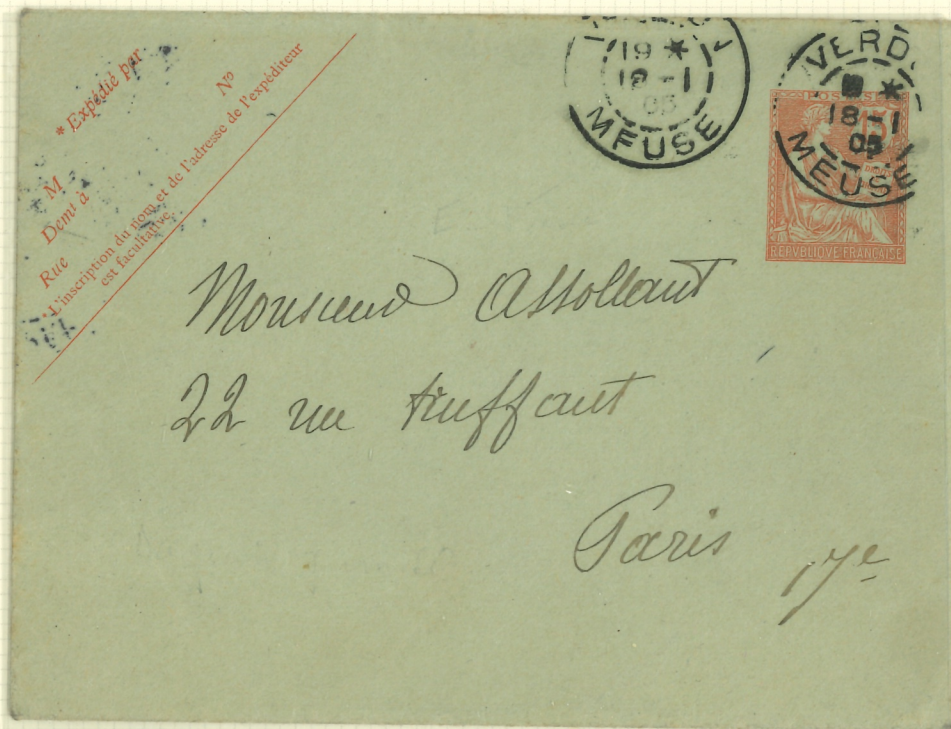 * Expédié par
N°
M
Demt à
Rue
L'inscription du nom et de l'adresse de l'expéditeur
est facultative.
19 *
18 -1
05
MEUSE
VERD
*
18 -1
05
MEUSE
POSTES
15
REPVBLIQVE FRANÇAISE
Monsieur Assollant
22 rue truffaut
Paris 17e